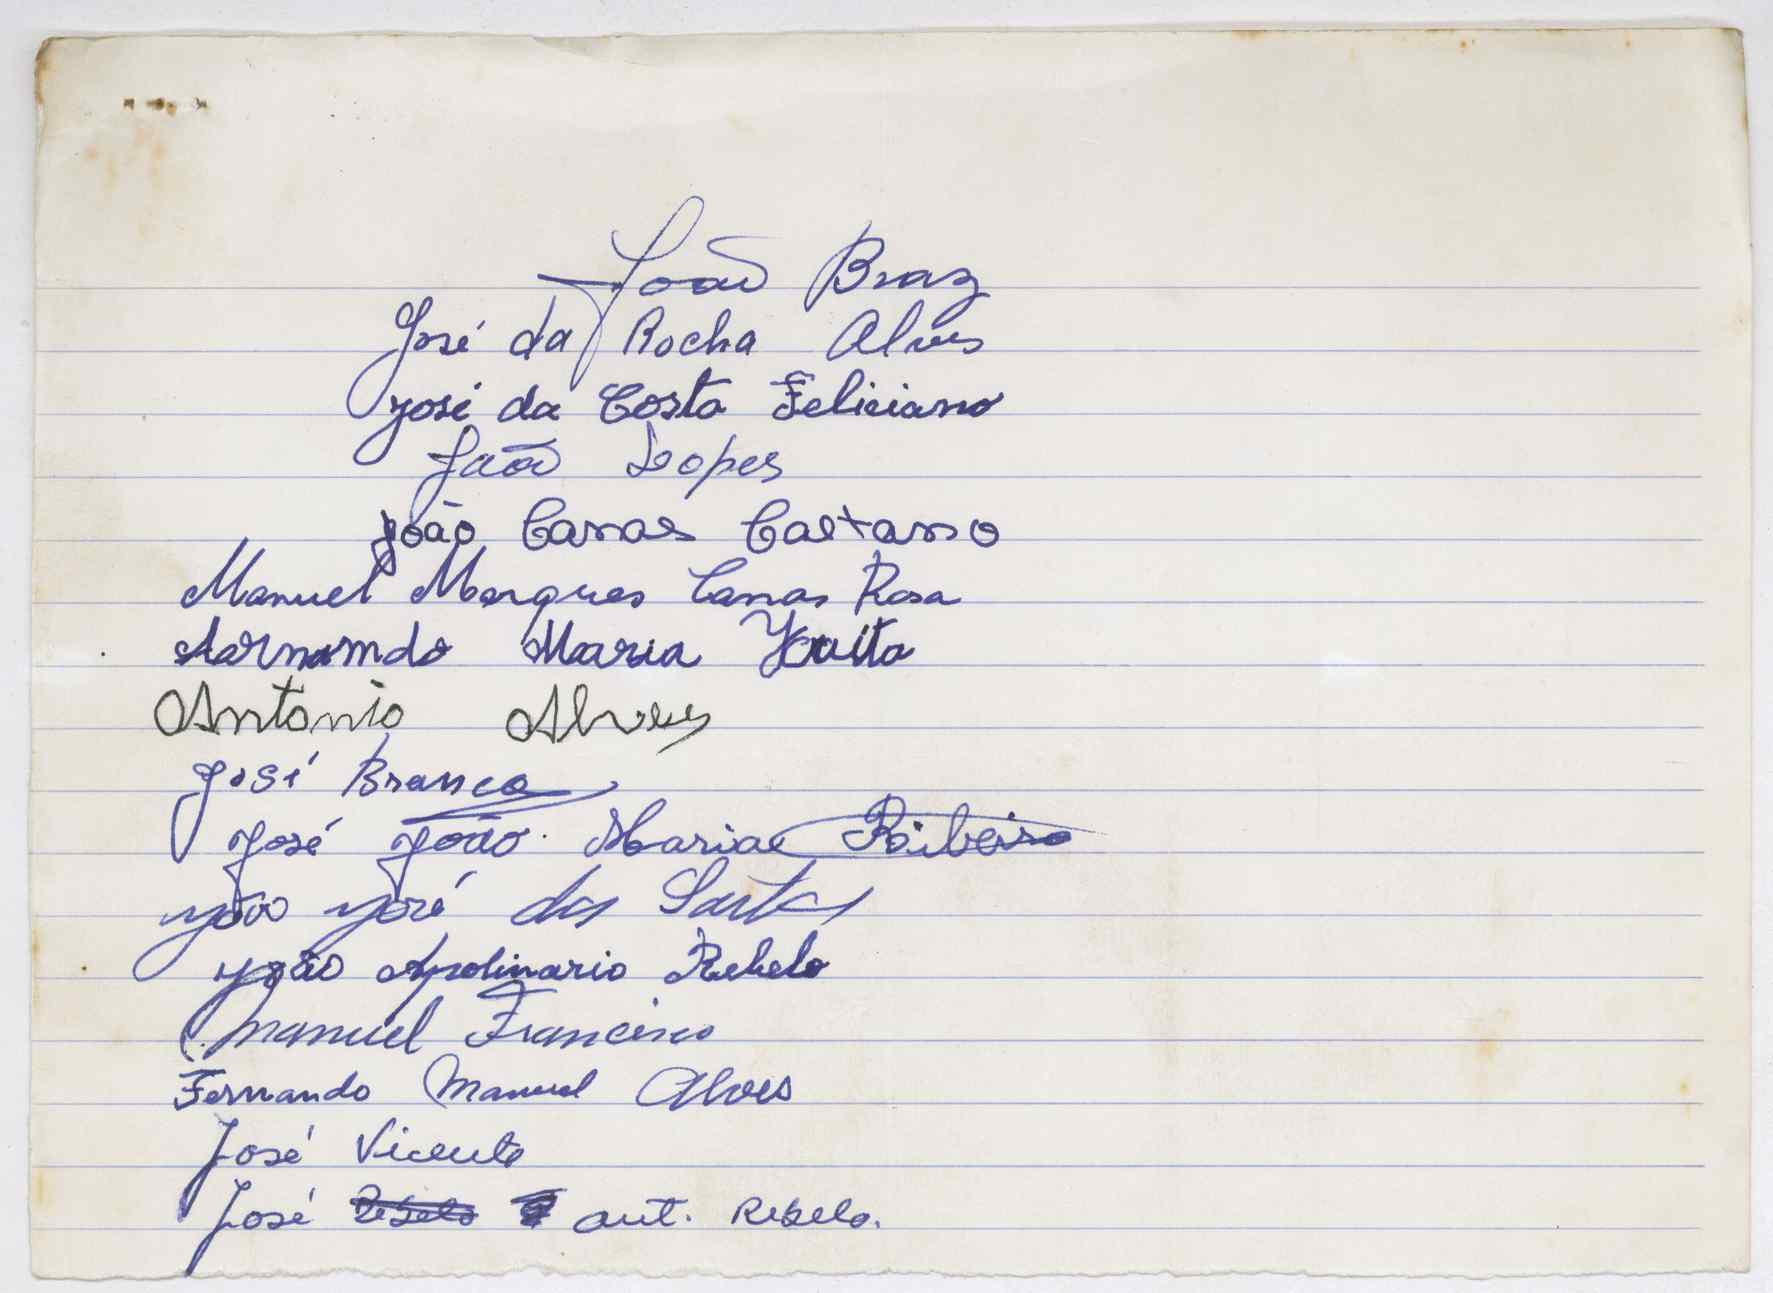 João Braz
José da Rocha Alves
José da Costa Feliciano
João Lopes
João Canas Caetano
Manuel Marques Canas Rosa
Armando Maria
Antonio Alves
José Branco
José João Maria Ribeiro
João José dos Santos
João Apolinario Rebelo
Manuel Francisco
Fernando Manuel Alves
José Vicente
José Rebelo ant. Rebelo.